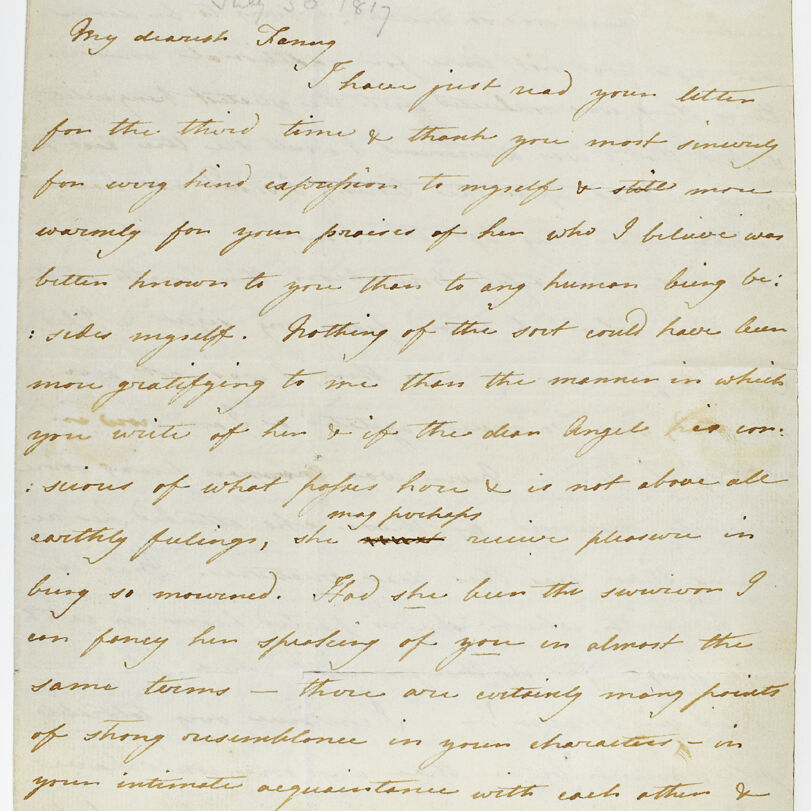 July 30 1817
My dearest Fanny
I have just read your letter
for the third time & thank you most sincerely
for every kind expression to myself & still more
warmly for your praises of her who I believe was
better known to you than to any human being be:
:sides myself. Nothing of the sort could have been
more gratifying to me than the manner in which
you write of her & if the dear Angel is con:
:scious of what passes here & is not above all
may perhaps
earthly feelings, she receive pleasure in
being so mourned. Had she been the survivor I
can fancy her speaking of you in almost the
same terms — there are certainly many points
of strong resemblance in your characters — in
your intimate acquaintance with each other &